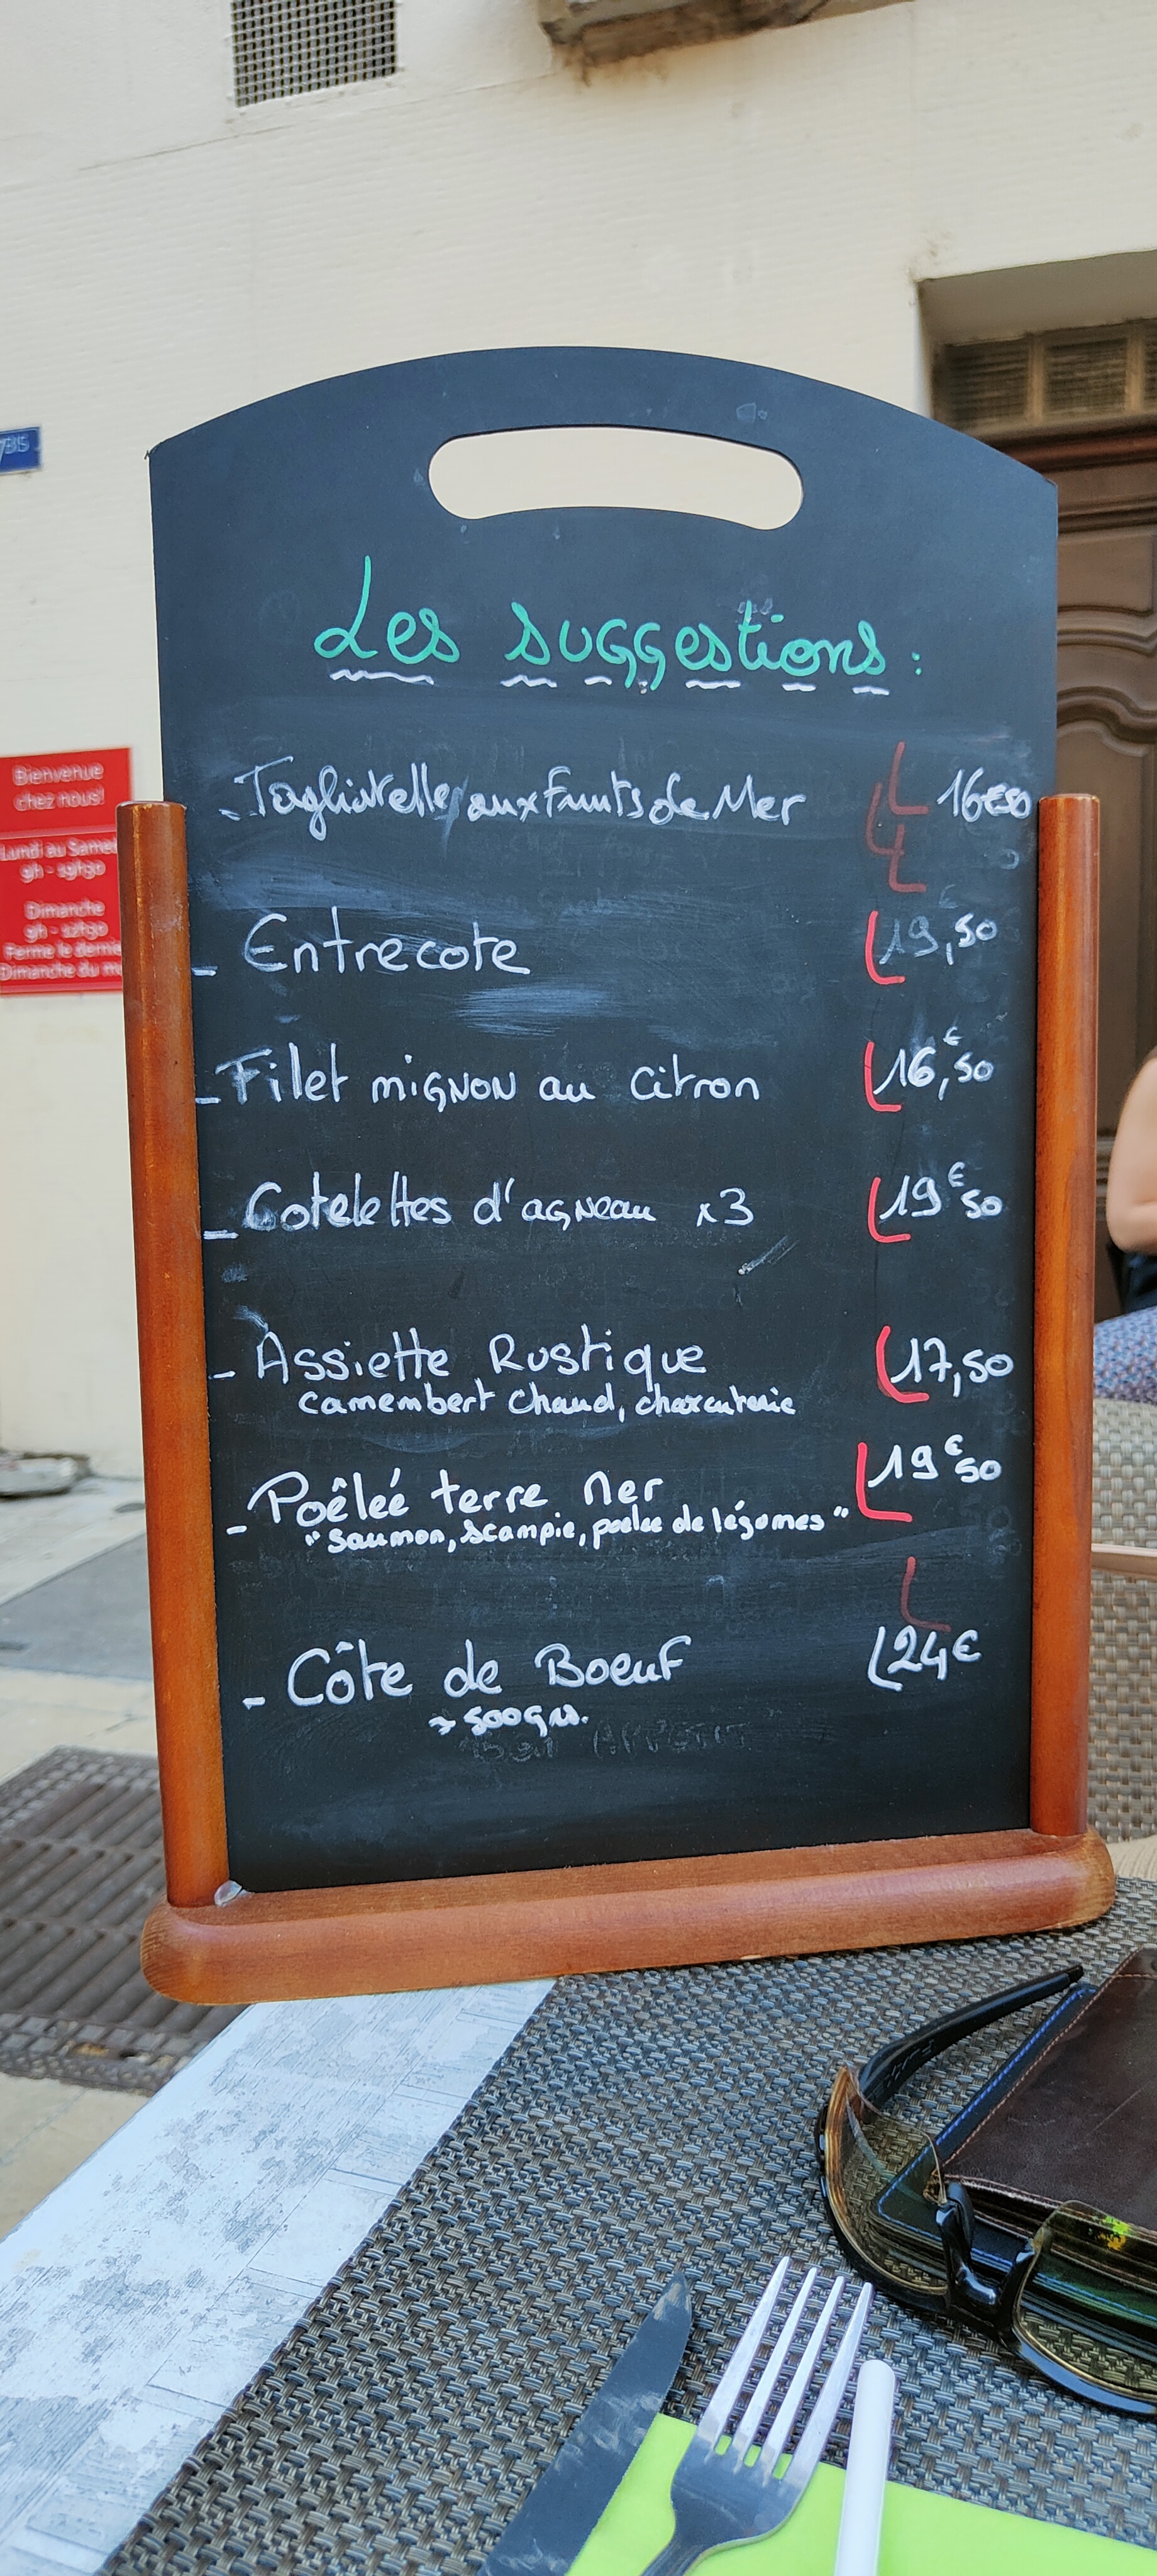 Les suggestions :
- Tagliatelle aux fruits de Mer 16€50
- Entrecote 19,50
- Filet mignon au citron 16,€50
- Cotelettes d'agneau x3 19€50
- Assiette Rustique 17,50
camembert chaud, charcuterie
- Poêleé terre mer 19€50
"saumon, scampie, poelee de légumes"
- Côte de Boeuf 24€
→ 500grs.
BON APPETIT
Bienvenue
chez nous!
Lundi au Samedi
9h - 19h30
Dimanche
9h - 12h30
Ferme le dernie
Dimanche du m